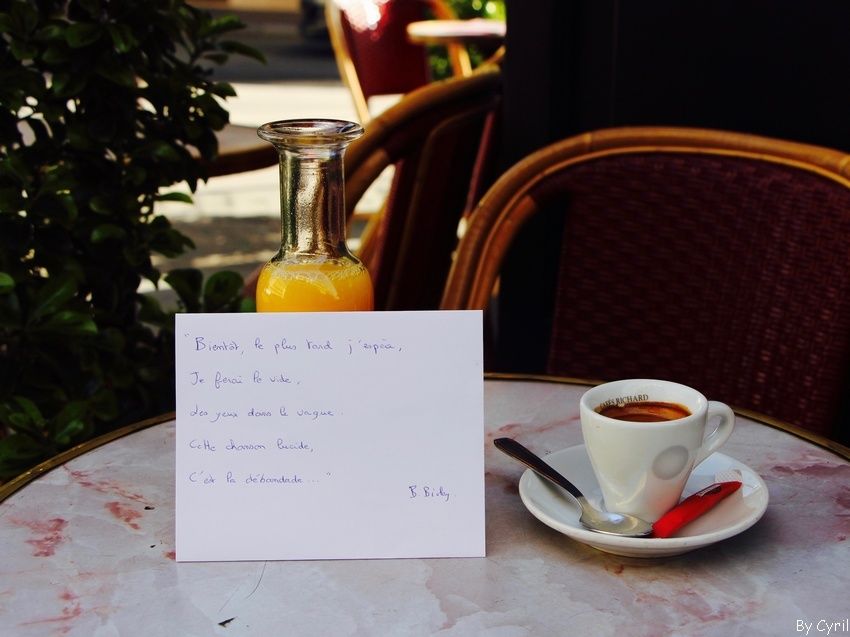 "Bientôt, le plus tard j'espère,
Je ferai le vide,
Les yeux dans le vague.
Cette chanson lucide,
C'est la débandade..."
B. Biolay.
CAFÉS RICHARD
By Cyril